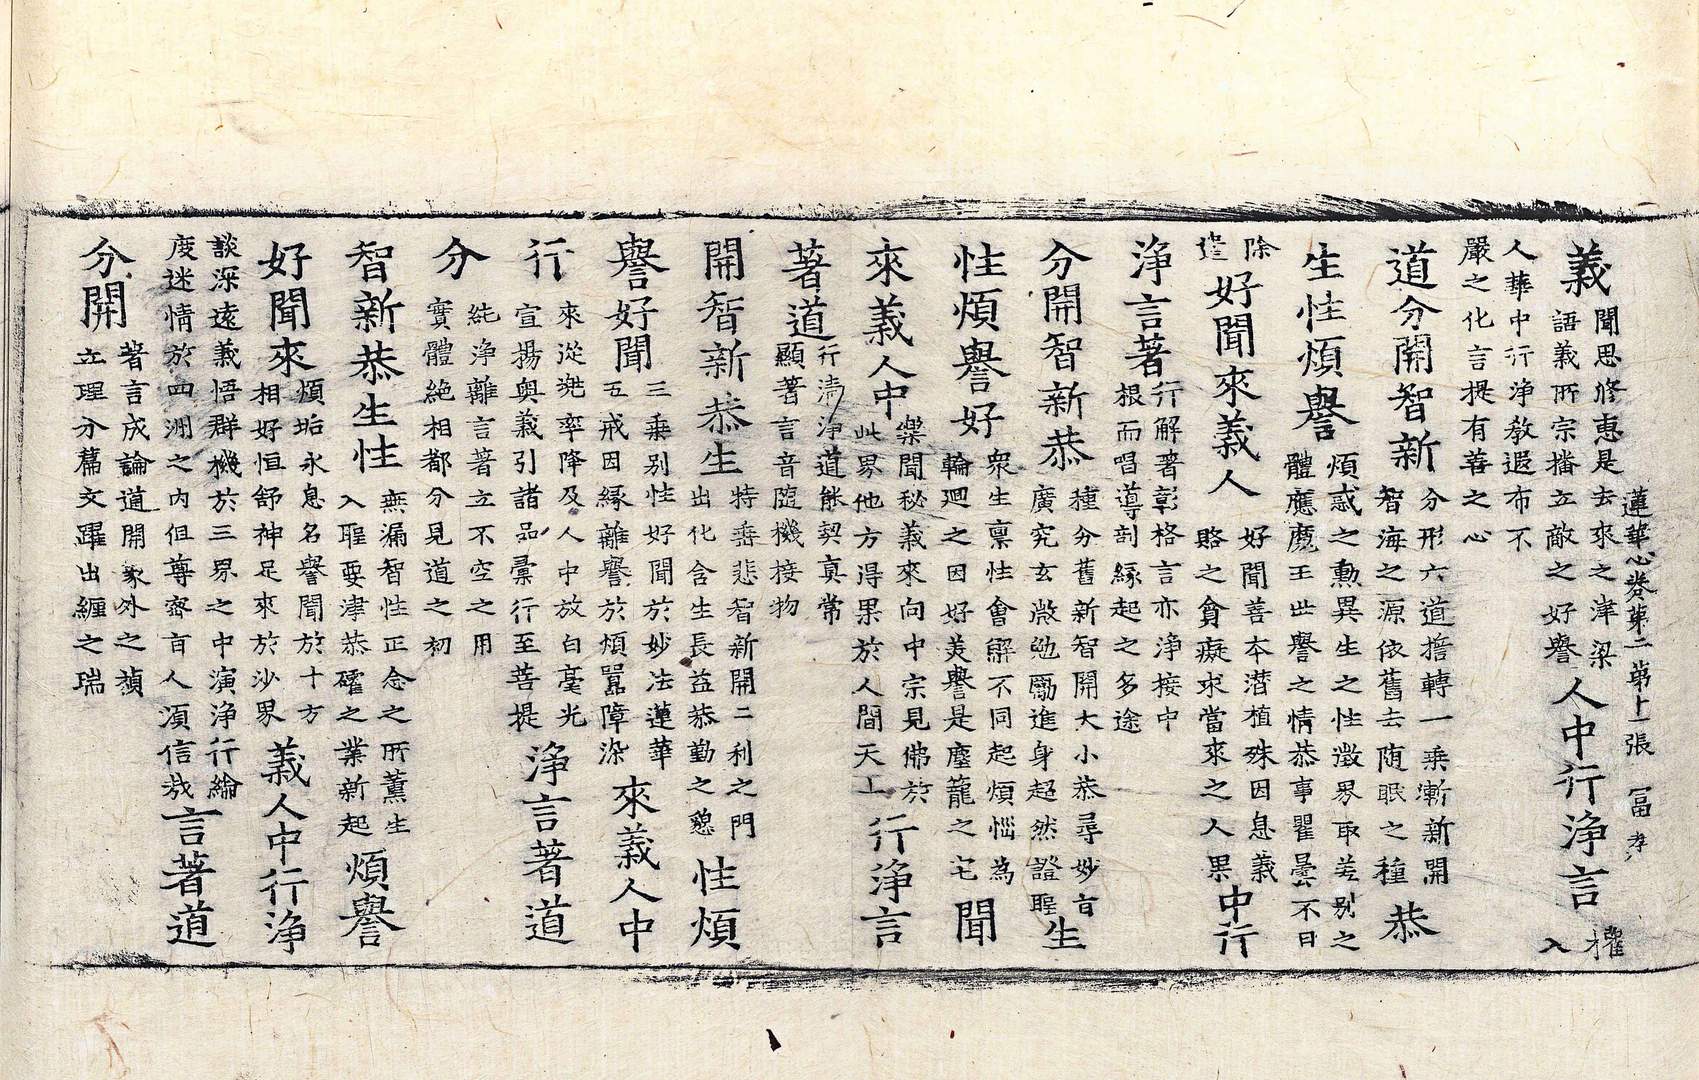 蓮華心卷第二 第十一張 冨 孝
義
聞思修惠是去來之津梁
語義所宗播立敵之好譽
人中行淨言
權
入
人華中行淨教遐布不
嚴之化言提有善之心
道分開智新
分形六道擔轉一乘漸新開
智海之源依舊去随眠之種
恭
生性煩譽
煩惑之勳異生之性徵界取差别之
體應魔王出譽之情恭事瞿曇不日
除
遣
好聞來義人
好聞善本潜植殊因息義
賂之貪癡求當來之人果
中行
淨言著
行解著彰格言亦淨接中
根而唱導剖緣起之多途
分開智新恭
種分舊新智開大小恭尋妙旨
廣究玄微勉勵進身超然證聖
生
性煩譽好
衆生稟性會解不同起煩惱為
輪廻之因好美譽是塵籠之宅
聞
來義人中
樂聞秘義來向中宗見佛於
此界他方得果於人間天上
行淨言
著道
行清淨道能契真常
顯著言音随機接物
開智新恭生
特垂悲智新開二利之門
出化含生長益恭勤之懇
性煩
譽好聞
三乘别性好聞於妙法蓮華
五戒因緣離譽於煩囂障染
來義人中
行
來從兠率降及人中放白毫光
宣揚奥義引諸品彙行至菩提
淨言著道
分
純淨離言著立不空之用
實體絶相都分見道之初
智新恭生性
無漏智性正念之所薰生
入聖要津恭確之業新起
煩譽
好聞來
煩垢永息名譽聞於十方
相好恒舒神足來於沙界
義人中行淨
談深遠義悟群機於三界之中演淨行綸
度迷情於四洲之内但尊齊盲人湏信哉
言著道
分開
著言成論道開象外之禎
立理分篇文躍出纏之瑞